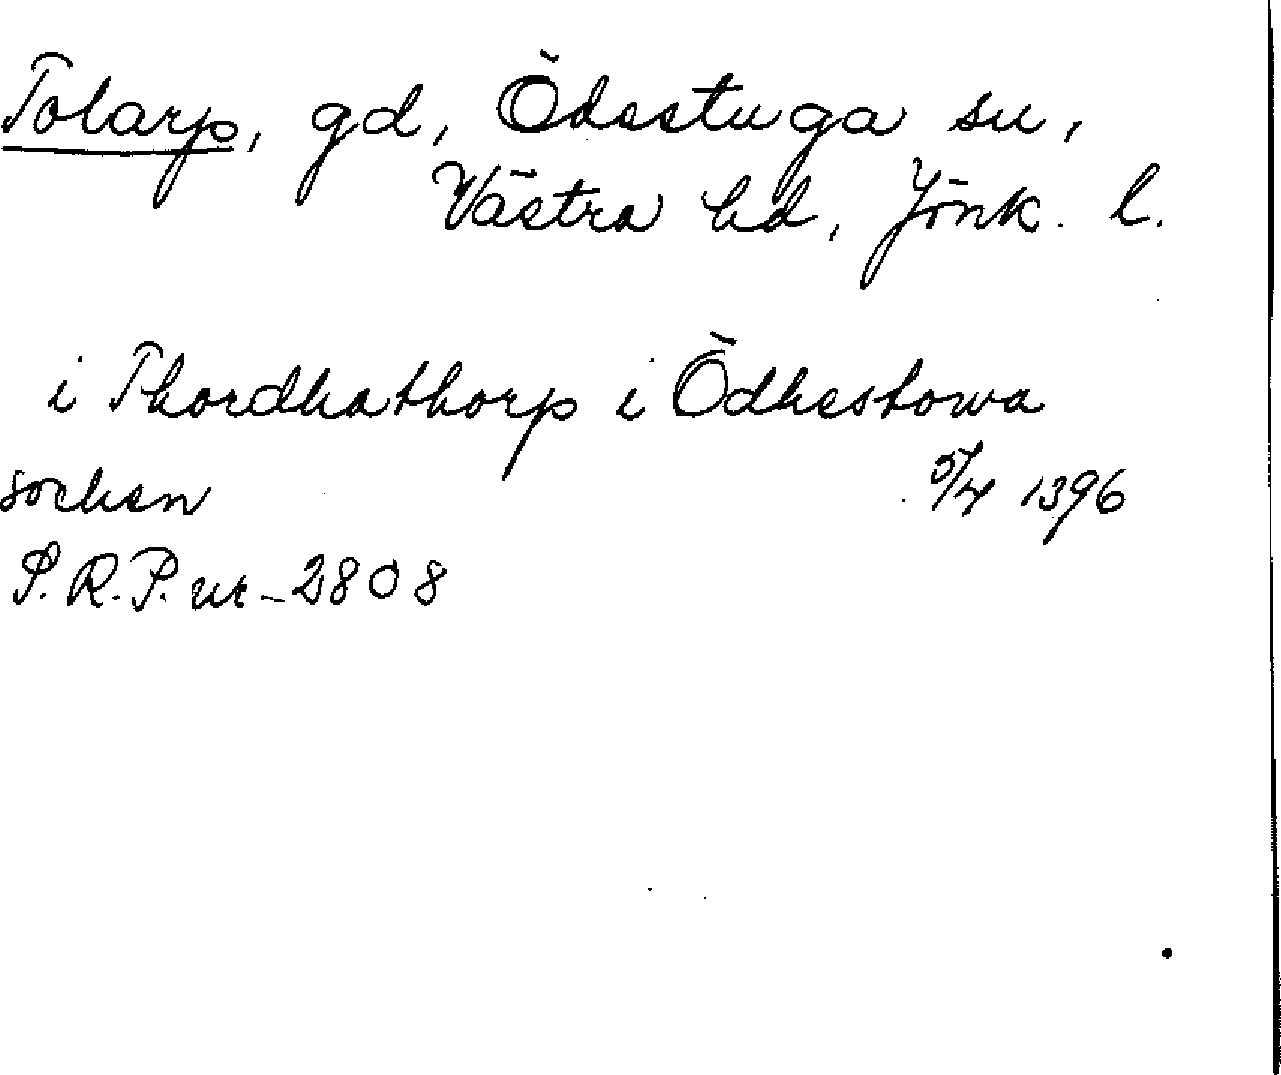 Tolarp, gd, Ödestuga sn,
Västra hd, Jönk. l.
i Thordhathorp i Ödhestowa
sochen 5/4 1396
S.R.P. nr 2808